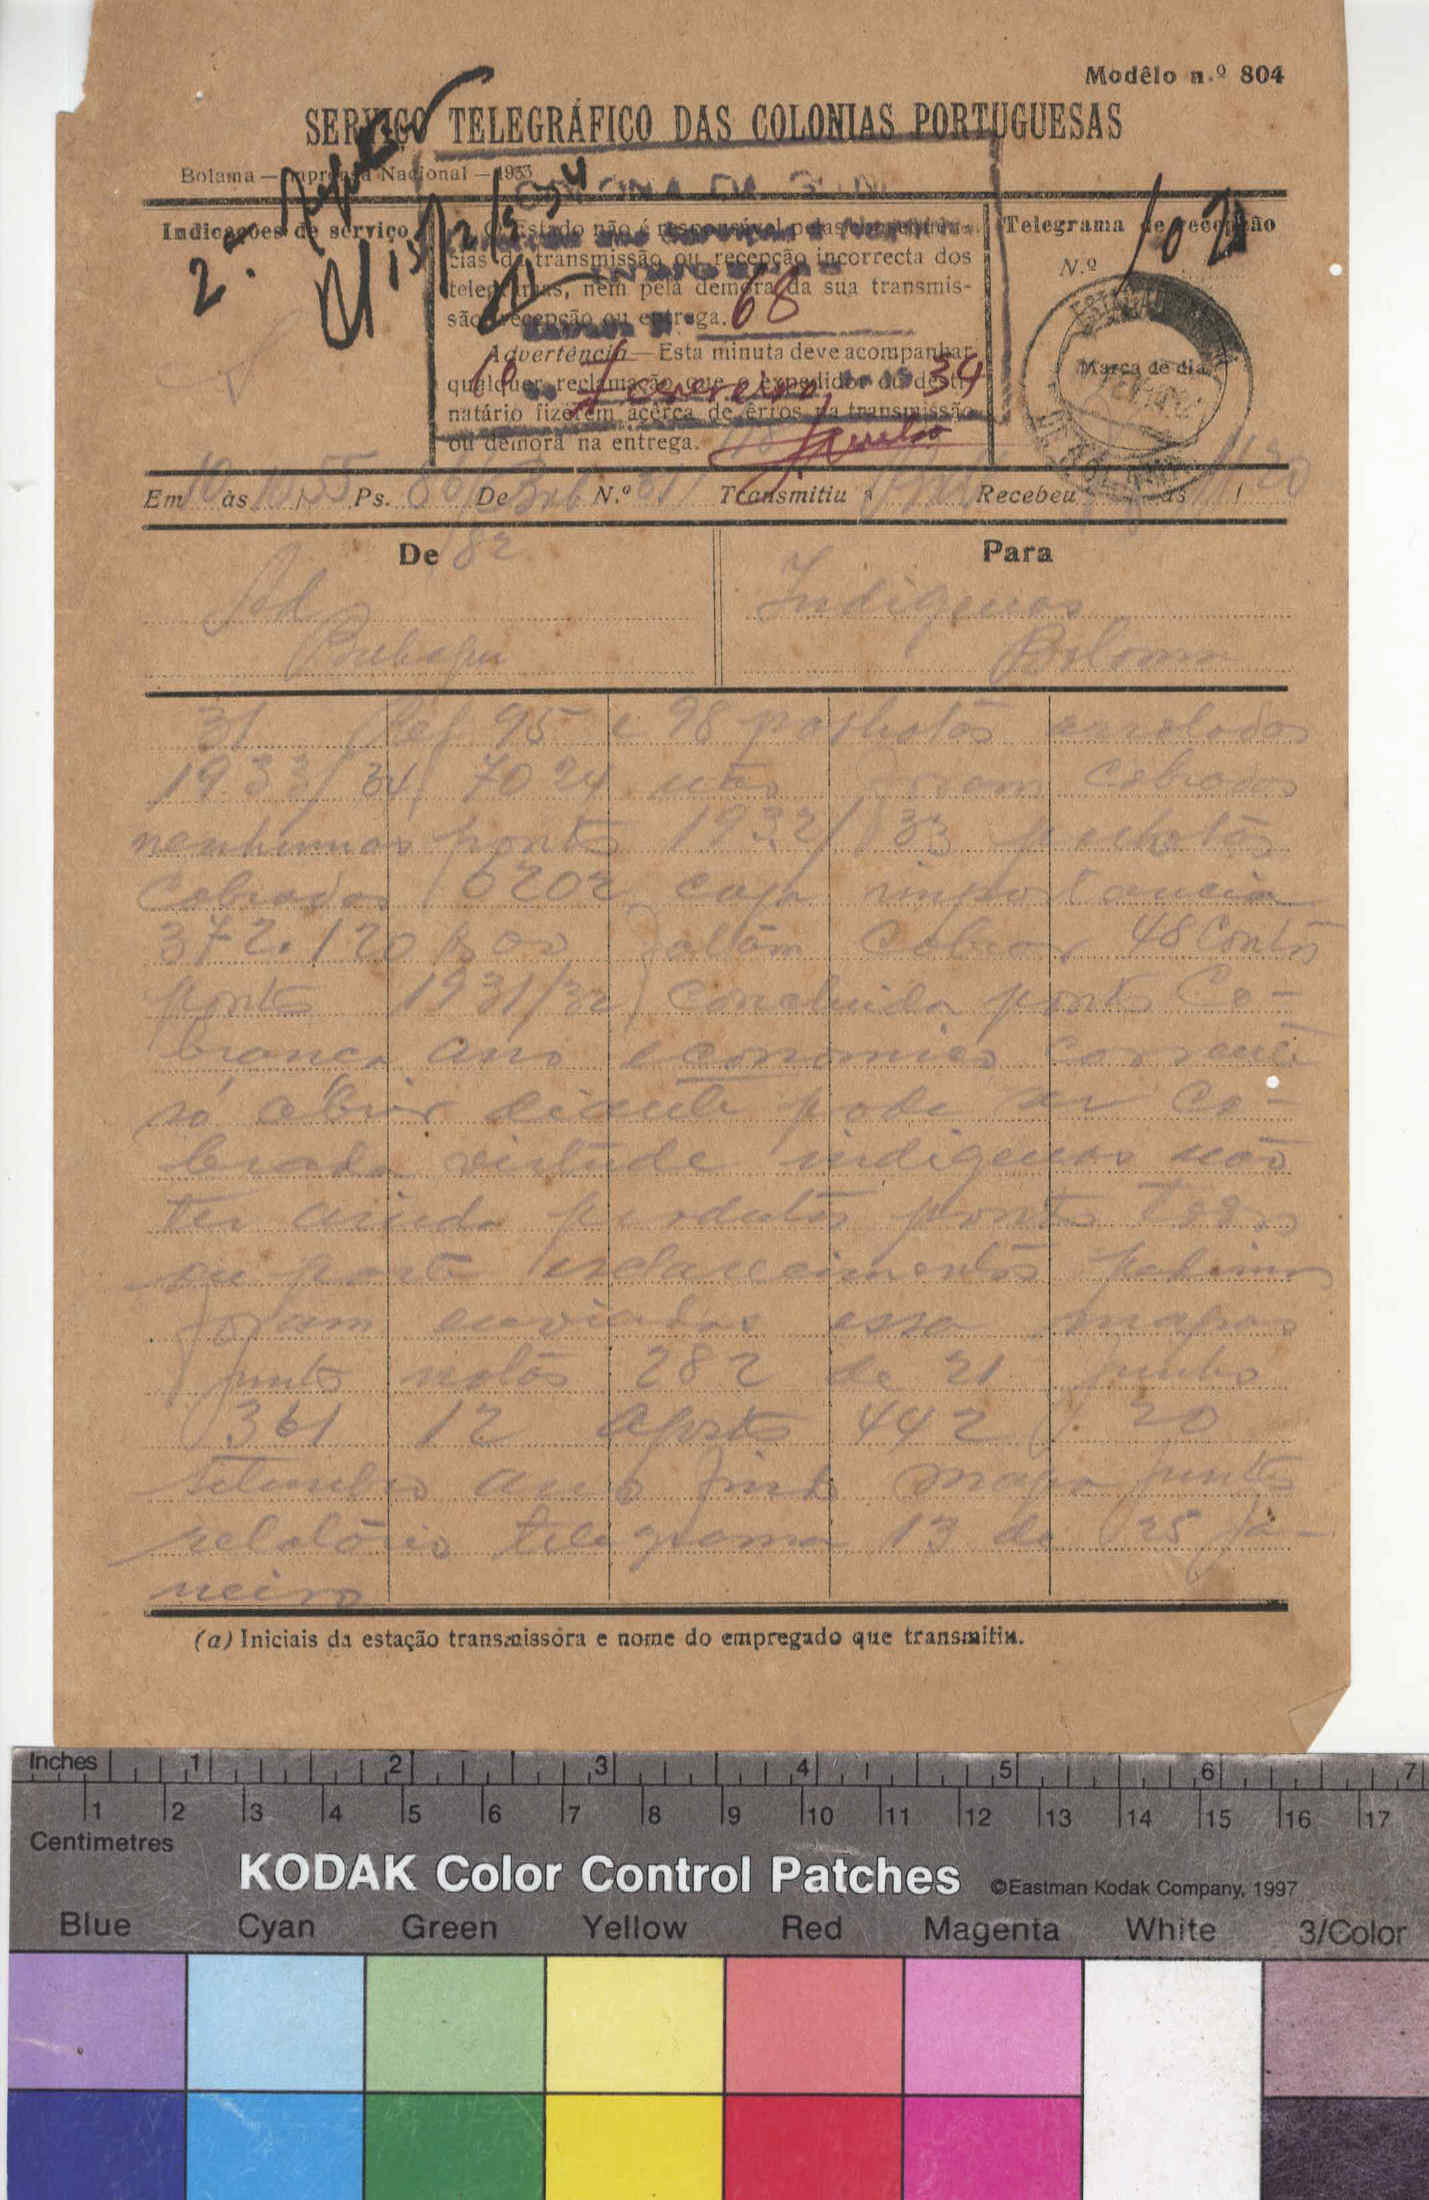 Modêlo n.º 804
SERVIÇO TELEGRÁFICO DAS COLONIAS PORTUGUESAS
Bolama — Imprensa Nacional — 1933
Indicações de serviço
O Estado não é responsável pelas
cias de transmissão ou recepção incorrecta dos
telegramas, nem pela demora da sua transmis-
são, recepção ou entrega. 68
Advertência — Esta minuta deve acompanhar
qualquer reclamação que o expedidor ou desti-
natário fizerem acêrca de êrros na transmissão
ou demora na entrega.
10 Fevereiro 34
Telegrama de recepção
N.º 102
Marca de dia
Em 10 às 10 55 Ps. De N.º 31 Transmitiu Recebeu às 11 20
De 82
Para
Ad
Bubaque
Indigenas
Bolama
31 Ref 95 e 98 palhotas arroladas
1933/34 7024 não foram cobradas
nenhumas ponto 1932/33 palhotas
cobradas 6202 cuja importancia
372.120$00 faltam cobrar 48 contos
ponto 1931/32 concluida ponto Co-
brança ano economico corrente
só abril diante pode ser co-
brada virtude indigenas não
ter ainda produtos ponto
parte esclarecimentos pedimos
foram enviados essa mapas
junto notas 282 de 21 junho
361 12 Agosto 442 20
Setembro ano findo mapa junto
relatório telegrama 13 de 25 Ja-
neiro
(a) Iniciais da estação transmissôra e nome do empregado que transmitiu.
Inches 1 2 3 4 5 6 7
1 2 3 4 5 6 7 8 9 10 11 12 13 14 15 16 17
Centimetres
KODAK Color Control Patches ©Eastman Kodak Company, 1997
Blue Cyan Green Yellow Red Magenta White 3/Color